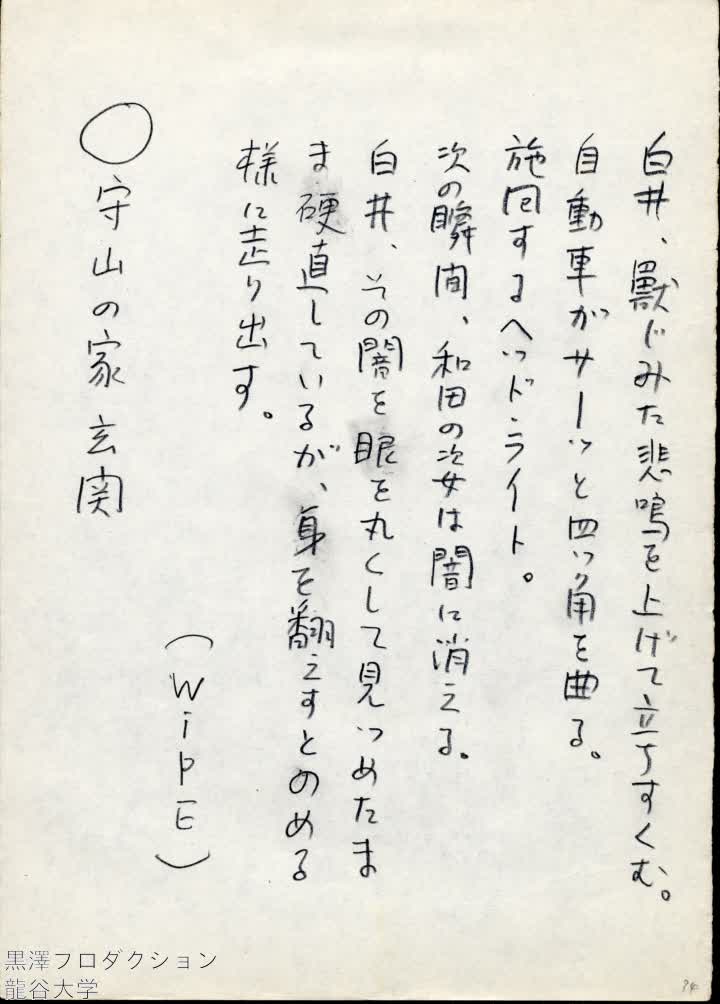 白井、獸じみた悲鳴を上げて立ちすくむ。
自動車がサーッと四ツ角を曲る。
施回するヘッド・ライト。
次の瞬間、和田の次女は闇に消える。
白井、その闇を眼を丸くして見つめたま
ま硬直しているが、身を翻えすとのめる
様に走り出す。
（WiPE）
○守山の家 玄関
黒澤プロダクション
龍谷大学